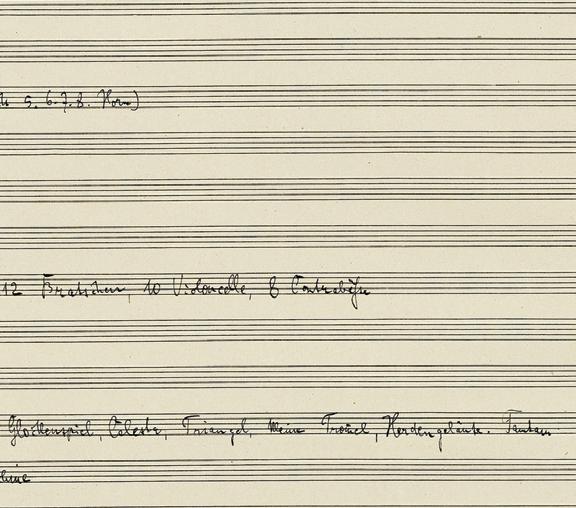 5. 6. 7. 8. Horn)
12 Bratschen, 10 Violoncelle, 8 Contrabässe
Glockenspiel, Celesta, Triangel, kleine Tromel, Herdengeläute. Tamtam